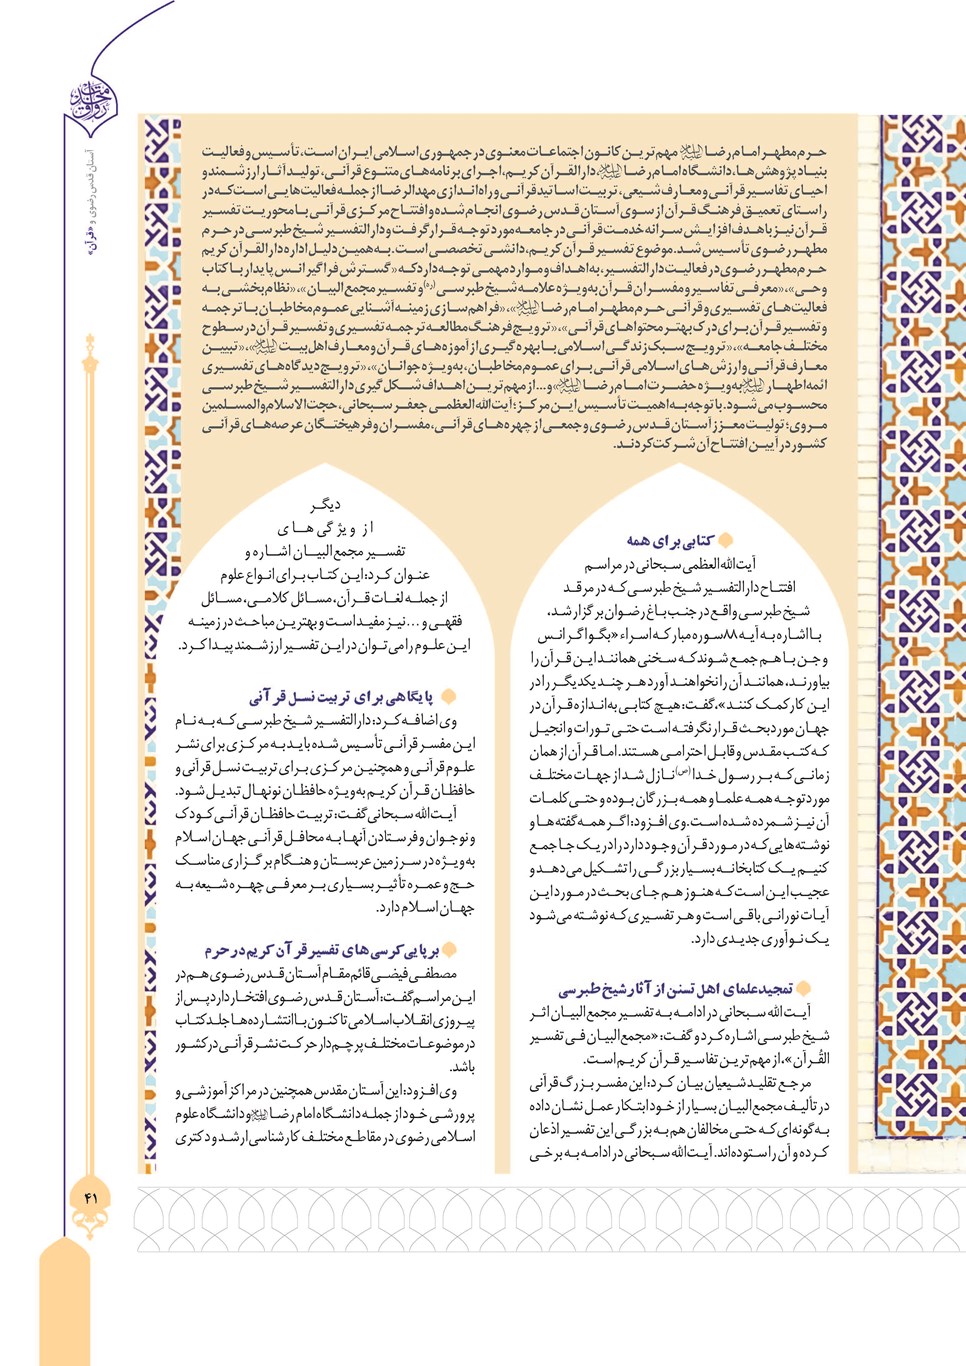 آستان قدس رضوی و «قرآن»
حرم مطهر امام رضا علیه‌السلام مهم‌ترین کانون اجتماعات معنوی در جمهوری اسلامی ایران است، تأسیس و فعالیت
بنیاد پژوهش‌ها، دانشگاه امام رضا علیه‌السلام، دارالقرآن کریم، اجرای برنامه‌های متنوع قرآنی، تولید آثار ارزشمند و
احیای تفاسیر قرآنی و معارف شیعی، تربیت اساتید قرآنی و راه‌اندازی مهدالرضا از جمله فعالیت‌هایی است که در
راستای تعمیق فرهنگ قرآن از سوی آستان قدس رضوی انجام شده و افتتاح مرکزی قرآنی با محوریت تفسیر
قرآن نیز با هدف افزایش سرانه خدمت قرآنی در جامعه مورد توجه قرار گرفت و دارالتفسیر شیخ طبرسی در حرم
مطهر رضوی تأسیس شد. موضوع تفسیر قرآن کریم، دانشی تخصصی است. به همین دلیل اداره دارالقرآن کریم
حرم مطهر رضوی در فعالیت دارالتفسیر، به اهداف و موارد مهمی توجه دارد که «گسترش فراگیر انس پایدار با کتاب
وحی»، «معرفی تفاسیر و مفسران قرآن به‌ویژه علامه شیخ طبرسی (ره) و تفسیر مجمع البیان»، «نظام‌بخشی به
فعالیت‌های تفسیری و قرآنی حرم مطهر امام رضا علیه‌السلام»، «فراهم‌سازی زمینه آشنایی عموم مخاطبان با ترجمه
و تفسیر قرآن برای درک بهتر محتواهای قرآنی»، «ترویج فرهنگ مطالعه ترجمه تفسیری و تفسیر قرآن در سطوح
مختلف جامعه»، «ترویج سبک زندگی اسلامی با بهره‌گیری از آموزه‌های قرآن و معارف اهل بیت علیهم‌السلام»، «تبیین
معارف قرآنی و ارزش‌های اسلامی قرآنی برای عموم مخاطبان، به‌ویژه جوانان»، «ترویج دیدگاه‌های تفسیری
ائمه اطهار علیهم‌السلام به‌ویژه حضرت امام رضا علیه‌السلام» و... از مهم‌ترین اهداف شکل‌گیری دارالتفسیر شیخ طبرسی
محسوب می‌شود. با توجه به اهمیت تأسیس این مرکز؛ آیت‌الله العظمی جعفر سبحانی، حجت‌الاسلام والمسلمین
مروی؛ تولیت معزز آستان قدس رضوی و جمعی از چهره‌های قرآنی، مفسران و فرهیختگان عرصه‌های قرآنی
کشور در آیین افتتاح آن شرکت کردند.
کتابی برای همه
آیت‌الله العظمی سبحانی در مراسم
افتتاح دارالتفسیر شیخ طبرسی که در مرقد
شیخ طبرسی واقع در جنب باغ رضوان برگزار شد،
با اشاره به آیه ۸۸ سوره مبارکه اسراء «بگو اگر انس
و جن با هم جمع شوند که سخنی همانند این قرآن را
بیاورند، همانند آن را نخواهند آورد هر چند یکدیگر را در
این کار کمک کنند»، گفت: هیچ کتابی به اندازه قرآن در
جهان مورد بحث قرار نگرفته است حتی تورات و انجیل
که کتب مقدس و قابل احترامی هستند. اما قرآن از همان
زمانی که بر رسول خدا (ص) نازل شد از جهات مختلف
مورد توجه همه علما و همه بزرگان بوده و حتی کلمات
آن نیز شمرده شده است. وی افزود: اگر همه گفته‌ها و
نوشته‌هایی که در مورد قرآن وجود دارد را در یک جا جمع
کنیم یک کتابخانه بسیار بزرگی را تشکیل می‌دهد و
عجیب این است که هنوز هم جای بحث در مورد این
آیات نورانی باقی است و هر تفسیری که نوشته می‌شود
یک نوآوری جدیدی دارد.
تمجید علمای اهل تسنن از آثار شیخ طبرسی
آیت‌الله سبحانی در ادامه به تفسیر مجمع البیان اثر
شیخ طبرسی اشاره کرد و گفت: «مجمع البیان فی تفسیر
القُرآن»، از مهم‌ترین تفاسیر قرآن کریم است.
مرجع تقلید شیعیان بیان کرد: این مفسر بزرگ قرآنی
در تألیف مجمع البیان بسیار از خود ابتکار عمل نشان داده
به‌گونه‌ای که حتی مخالفان هم به بزرگی این تفسیر اذعان
کرده و آن را ستوده‌اند. آیت‌الله سبحانی در ادامه به برخی
دیگر
از ویژگی‌های
تفسیر مجمع البیان اشاره و
عنوان کرد: این کتاب برای انواع علوم
از جمله لغات قرآن، مسائل کلامی، مسائل
فقهی و ... نیز مفید است و بهترین مباحث در زمینه
این علوم را می‌توان در این تفسیر ارزشمند پیدا کرد.
پایگاهی برای تربیت نسل قرآنی
وی اضافه کرد: دارالتفسیر شیخ طبرسی که به نام
این مفسر قرآنی تأسیس شده باید به مرکزی برای نشر
علوم قرآنی و همچنین مرکزی برای تربیت نسل قرآنی و
حافظان قرآن کریم به‌ویژه حافظان نونهال تبدیل شود.
آیت‌الله سبحانی گفت: تربیت حافظان قرآنی کودک
و نوجوان و فرستادن آنها به محافل قرآنی جهان اسلام
به‌ویژه در سرزمین عربستان و هنگام برگزاری مناسک
حج و عمره تأثیر بسیاری بر معرفی چهره شیعه به
جهان اسلام دارد.
برپایی کرسی‌های تفسیر قرآن کریم در حرم
مصطفی فیضی قائم‌مقام آستان قدس رضوی هم در
این مراسم گفت: آستان قدس رضوی افتخار دارد پس از
پیروزی انقلاب اسلامی تاکنون با انتشار ده‌ها جلد کتاب
در موضوعات مختلف پرچم‌دار حرکت نشر قرآنی در کشور
باشد.
وی افزود: این آستان مقدس همچنین در مراکز آموزشی و
پرورشی خود از جمله دانشگاه امام رضا علیه‌السلام و دانشگاه علوم
اسلامی رضوی در مقاطع مختلف کارشناسی ارشد و دکتری
۴۱